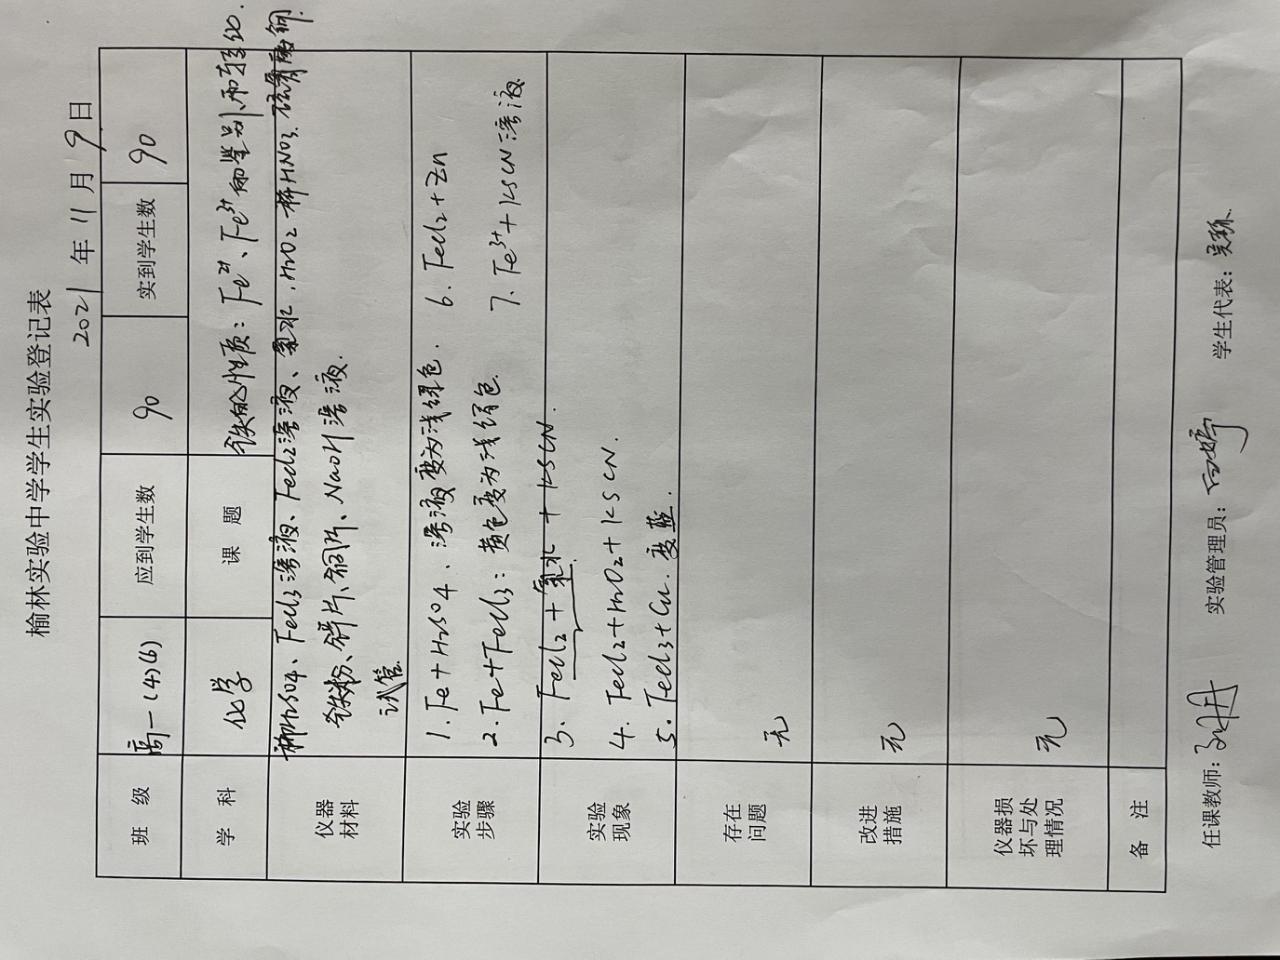 榆林实验中学学生实验登记表
2021 年 11 月 9 日
班 级 高一(4)(6) 应到学生数 90 实到学生数 90
学 科 化学 课 题 铁的性质：Fe²⁺、Fe³⁺的鉴别和转化.
仪器材料 稀H₂SO4、FeCl₃溶液、FeCl₂溶液、氯水、H₂O₂ 稀HNO₃.
铁粉、锌片、铜片、NaOH溶液.
试管
实验步骤 1. Fe+H₂SO4、溶液变为浅绿色. 6. FeCl₂+Zn
2. Fe+FeCl₃：黄色变为浅绿色. 7. Fe³⁺+KSCN溶液
实验现象 3. FeCl₂+氯水+KSCN.
4. FeCl₂+H₂O₂+KSCN.
5. FeCl₃+Cu. 变蓝.
存在问题 无
改进措施 无
仪器损坏与处理情况 无
备 注
任课教师： 实验管理员： 学生代表：